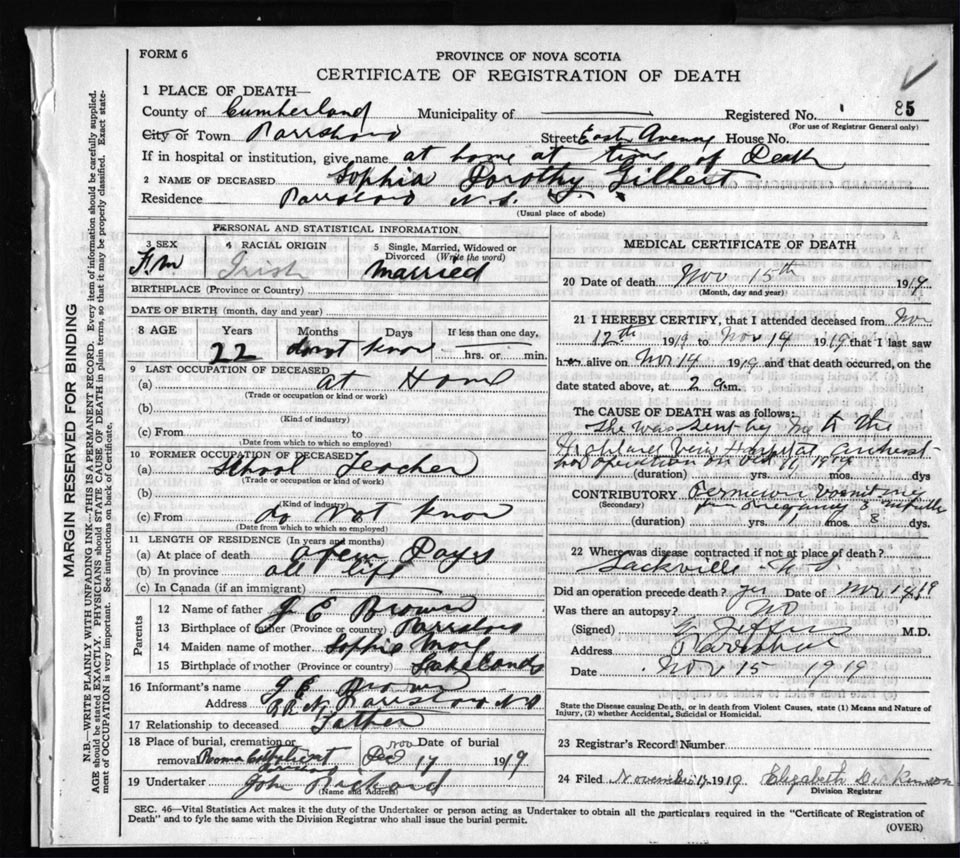 FORM 6
PROVINCE OF NOVA SCOTIA
CERTIFICATE OF REGISTRATION OF DEATH
85
1 PLACE OF DEATH—
County of Cumberland Municipality of Registered No.
(For use of Registrar General only)
City or Town Parrsboro Street Eastern Avenue House No.
If in hospital or institution, give name at home at time of Death
2 NAME OF DECEASED Sophia Dorothy Gilbert
Residence Parrsboro N.S.
(Usual place of abode)
PERSONAL AND STATISTICAL INFORMATION
3 SEX Fm
4 RACIAL ORIGIN Irish
5 Single, Married, Widowed or Divorced (Write the word) Married
BIRTHPLACE (Province or Country)
DATE OF BIRTH (month, day and year)
8 AGE Years Months Days If less than one day,
22 dont know hrs. or min.
9 LAST OCCUPATION OF DECEASED
(a) at Home
(Trade or occupation or kind or work)
(b)
(Kind of industry)
(c) From to
(Date from which to which so employed)
10 FORMER OCCUPATION OF DECEASED
(a) School Teacher
(Trade or occupation or kind of work)
(b)
(Kind of industry)
(c) From do not know
(Date from which to which so employed)
11 LENGTH OF RESIDENCE (In years and months)
(a) At place of death a few Days
(b) In province all life
(c) In Canada (if an immigrant)
Parents
12 Name of father J E Brown
13 Birthplace of father (Province or country) Parrsboro
14 Maiden name of mother Sophie
15 Birthplace of mother (Province or country) Lakelands
16 Informant's name J E Brown
Address Parrsboro N S
17 Relationship to deceased Father
18 Place of burial, cremation or removal Roman Parrsboro
Date of burial Nov Dec 17 1919
19 Undertaker John Rickard
(Name and Address)
MEDICAL CERTIFICATE OF DEATH
20 Date of death Nov 15th 1919
(Month, day and year)
21 I HEREBY CERTIFY, that I attended deceased from Nov
12th 1919 to Nov 14 1919 that I last saw
her alive on Nov 14 1919 and that death occurred, on the
date stated above, at 2 a.m.
The CAUSE OF DEATH was as follows:
She was sent by me to the
Highland View Hospital Amherst
had operation on
(duration) yrs. mos. days
CONTRIBUTORY Pernicious Vomiting
(Secondary) Pregnancy 3
(duration) yrs. mos. 8 dys.
22 Where was disease contracted if not at place of death?
Sackville N S
Did an operation precede death? yes Date of Nov 14 19
Was there an autopsy? NO
(Signed) M.D.
Address Parrsboro
Date Nov 15 1919
State the Disease causing Death, or in death from Violent Causes, state (1) Means and Nature of
Injury, (2) whether Accidental, Suicidal or Homicidal.
23 Registrar's Record Number
24 Filed November 17 1919 Elizabeth
Division Registrar
SEC. 46—Vital Statistics Act makes it the duty of the Undertaker or person acting as Undertaker to obtain all the particulars required in the "Certificate of Registration of
Death" and to fyle the same with the Division Registrar who shall issue the burial permit.
(OVER)
MARGIN RESERVED FOR BINDING
N.B.—WRITE PLAINLY WITH UNFADING INK—THIS IS A PERMANENT RECORD. Every item of information should be carefully supplied.
AGE should be stated EXACTLY. PHYSICIANS should STATE CAUSE OF DEATH in plain terms, so that it may be properly classified. Exact statement of OCCUPATION is very important. See instructions on back of Certificate.